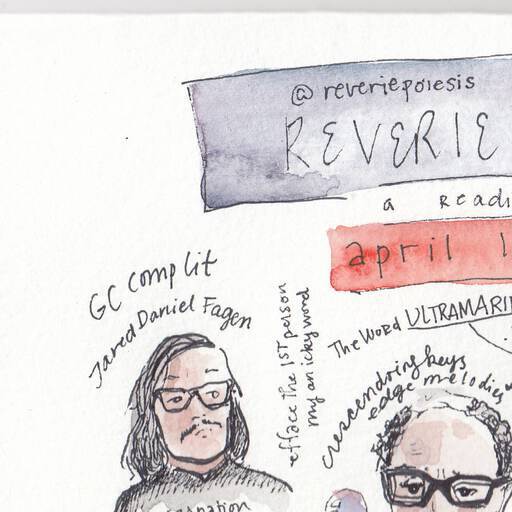 @ reveriepoiesis
REVERIE
a Readi
april 1
GC Complit
Jared Daniel Fagen
efface the 1ST person
my an icky word
The Word ULTRAMARIN
Crescendoing keys
edge melodies